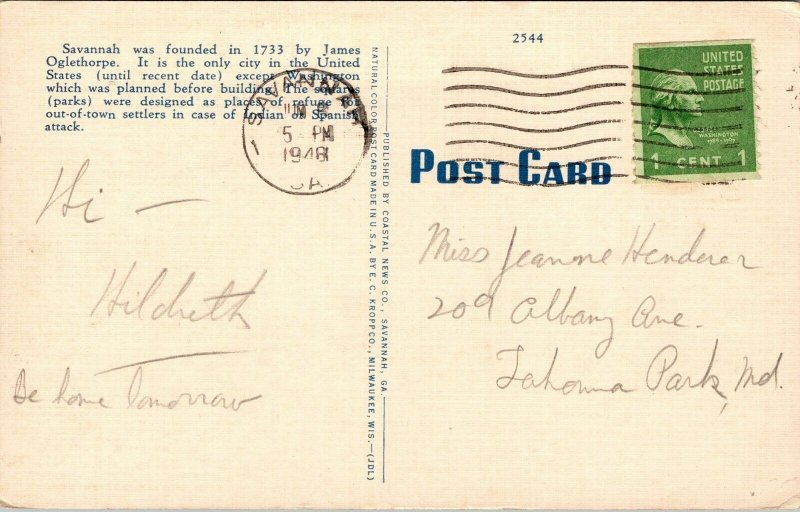 Savannah was founded in 1733 by James
Oglethorpe. It is the only city in the United
States (until recent date) except Washington
which was planned before building. The squares
(parks) were designed as places of refuge for
out-of-town settlers in case of Indian or Spanish
attack.
Hi —
Hildreth
Be home Tomorrow
NATURAL COLOR POST CARD MADE IN U.S.A. BY E. C. KROPP CO., MILWAUKEE, WIS.—(JDL)
PUBLISHED BY COASTAL NEWS CO., SAVANNAH, GA.
SAVANNAH
5 PM
1948
GA.
2544
UNITED
STATES
POSTAGE
WASHINGTON
1 CENT 1
POST CARD
Miss Jeanne Henderer
209 Albany Ave.
Tahoma Park, Md.